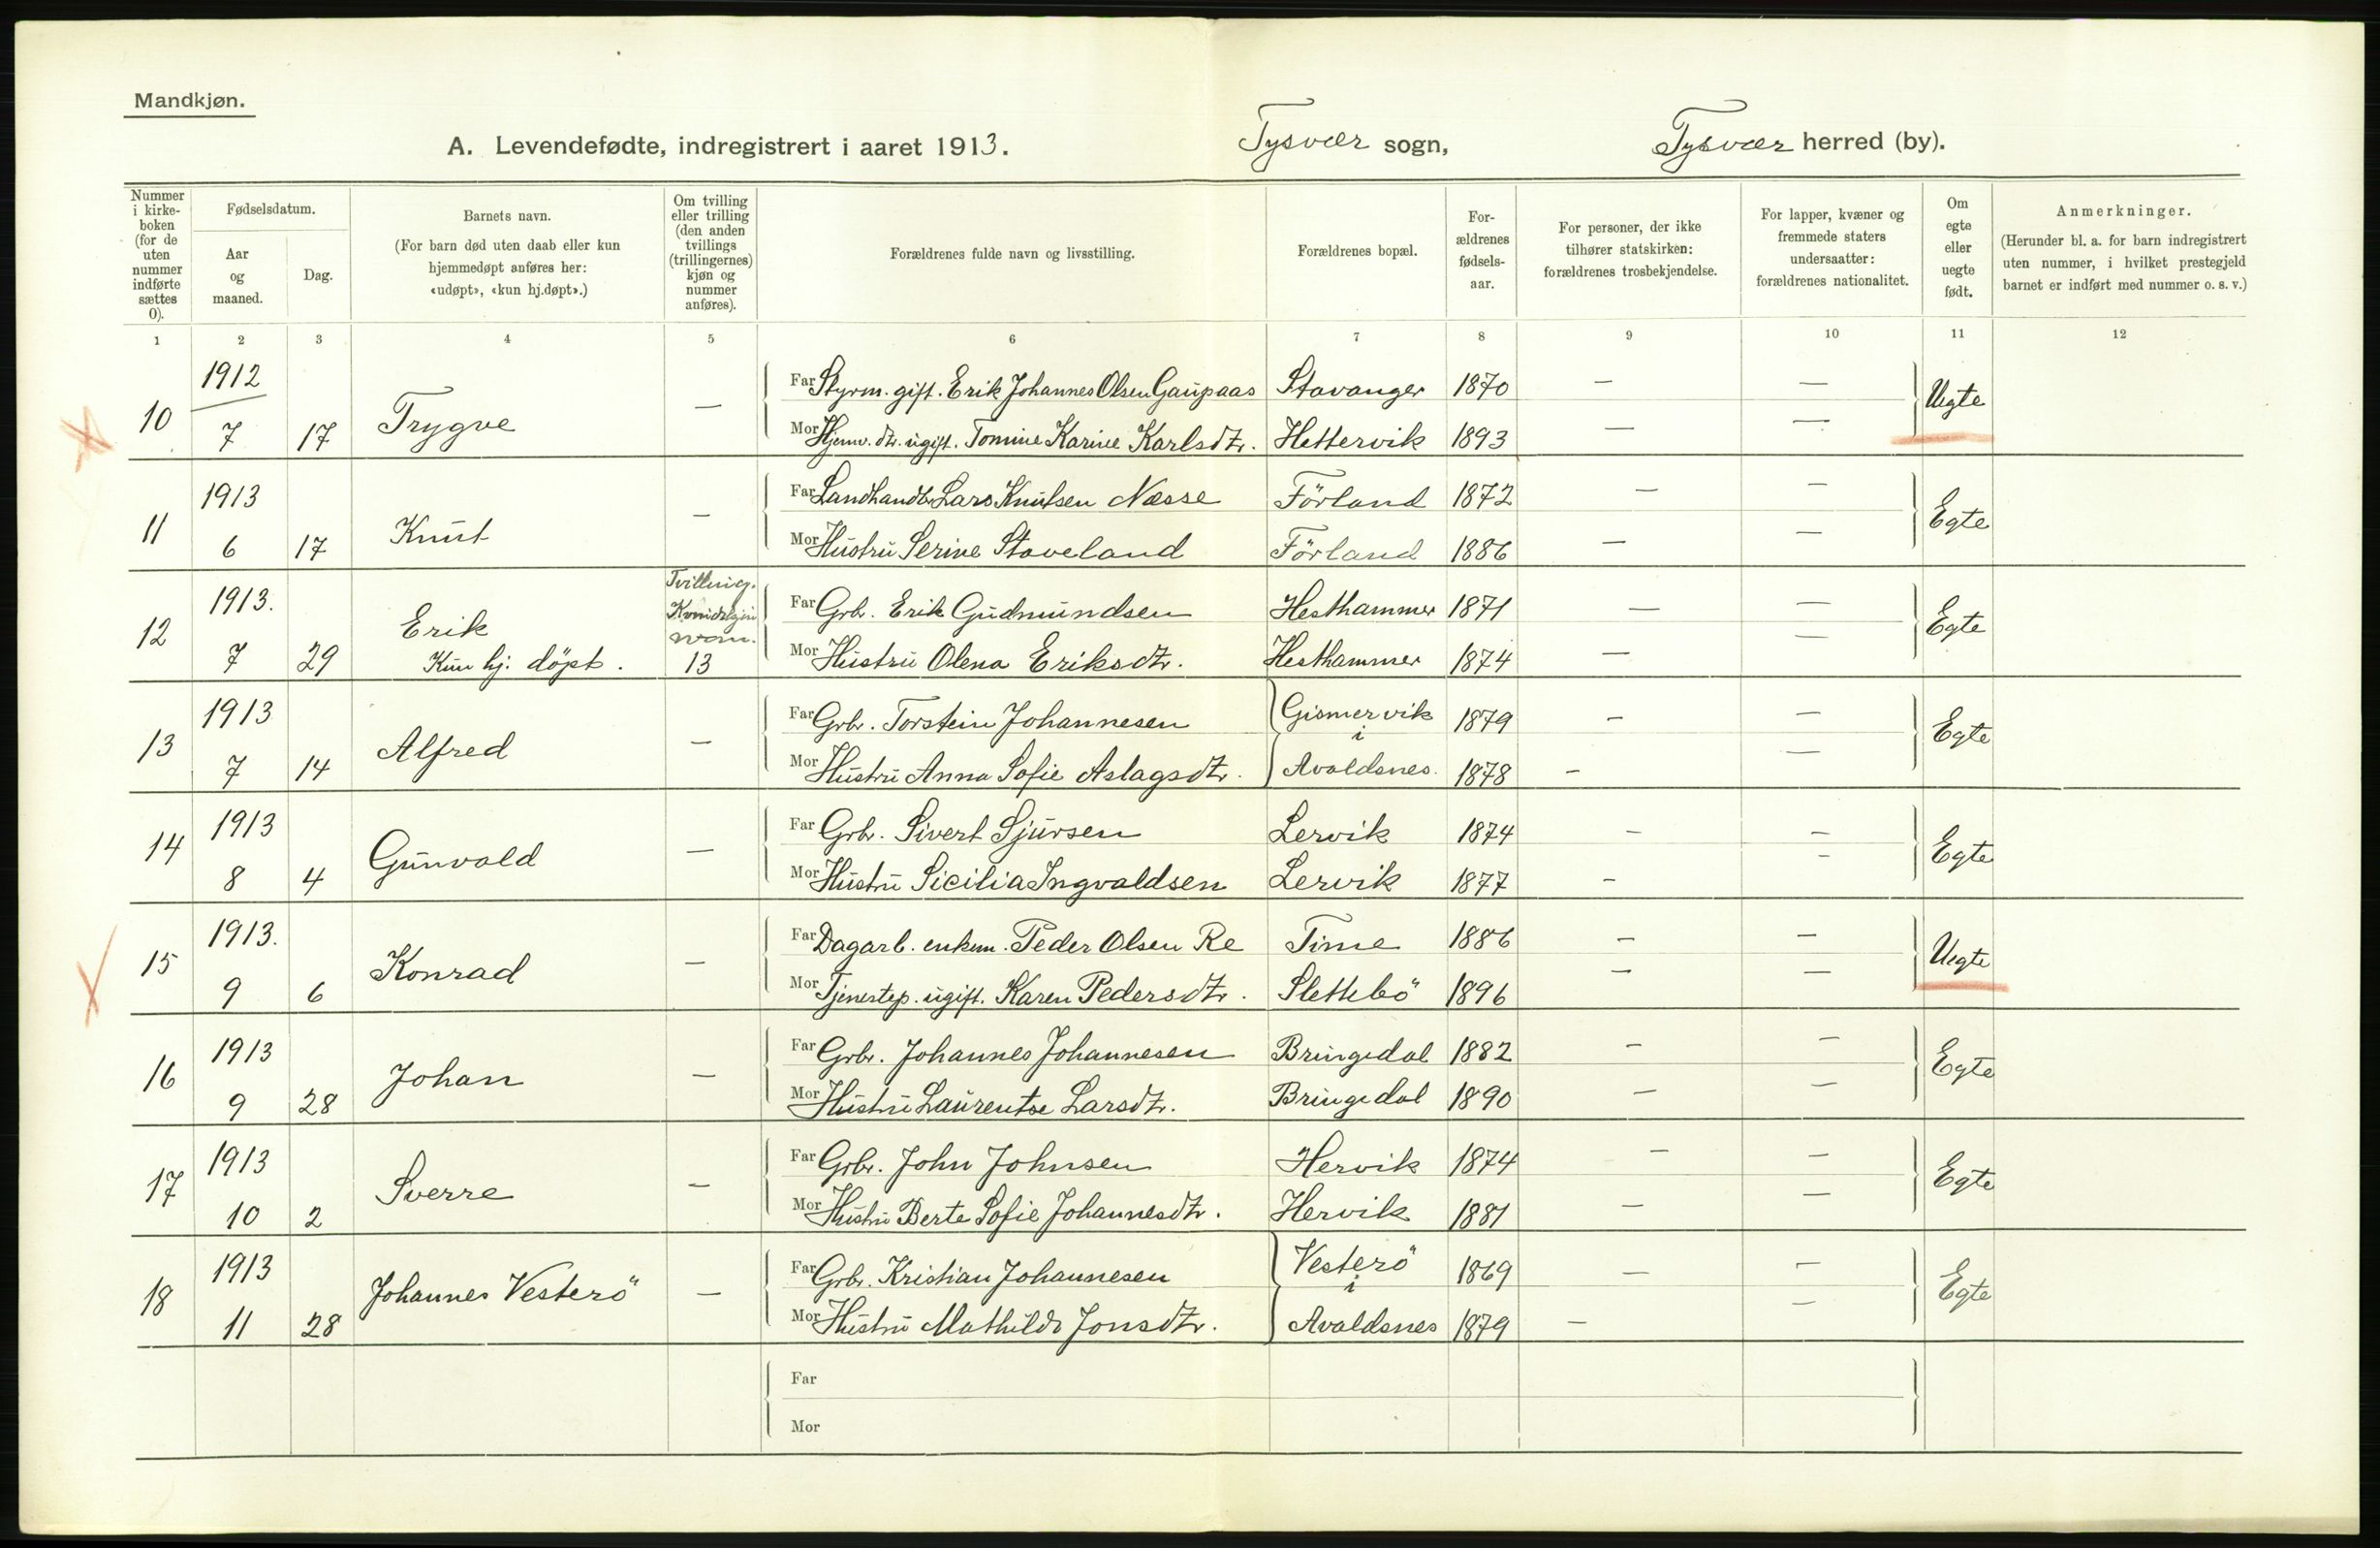 Mandkjøn.
A. Levendefødte, indregistrert i aaret 1913. Tysvær sogn, Tysvær herred (by).
Nummer i kirke-boken (for de uten nummer indførte sættes 0).
Fødselsdatum.
Aar og maaned.
Dag.
Barnets navn.
(For barn død uten daab eller kun hjemmedøpt anføres her: «udøpt», «kun hj.døpt».)
Om tvilling eller trilling (den anden tvillings (trillingernes) kjøn og nummer anføres).
Forældrenes fulde navn og livsstilling.
Forældrenes bopæl.
For-ældrenes fødsels-aar.
For personer, der ikke tilhører statskirken: forældrenes trosbekjendelse.
For lapper, kvæner og fremmede staters undersaatter: forældrenes nationalitet.
Om egte eller uegte født.
Anmerkninger.
(Herunder bl. a. for barn indregistrert uten nummer, i hvilket prestegjeld barnet er indført med nummer o. s. v.)
1 2 3 4 5 6 7 8 9 10 11 12
10 1912 7 17 Trygve —
Far Styrm. gift. Erik Johannes Olsen Gaupaas Stavanger 1870 — — Uegte
Mor Hjemv. dtr. ugift. Tomine Karine Karlsdtr. Hettervik 1893 — —
11 1913 6 17 Knut —
Far Landhandl. Lars Knutsen Næsse Förland 1872 — — Egte
Mor Hustru Serine Stoveland Förland 1886 — —
12 1913. 7 29 Erik Kun hj. döpt. Tvilling. 13
Far Grbr. Erik Gudmundsen Hesthammer 1871 — — Egte
Mor Hustru Olena Eriksdtr. Hesthammer 1874 — —
13 1913 7 14 Alfred —
Far Grbr. Torstein Johannesen Gismervik i 1879 — — Egte
Mor Hustru Anna Sofie Aslagsdtr. Avaldsnes. 1878 — —
14 1913 8 4 Gunvald —
Far Grbr. Sivert Sjursen Lervik 1874 — — Egte
Mor Hustru Sicilia Ingvaldsen Lervik 1877 — —
15 1913. 9 6 Konrad —
Far Dagarb. enkem. Peder Olsen Re Time 1886 — — Uegte
Mor Tjenestep. ugift. Karen Pedersdtr. Slettebö 1896 — —
16 1913 9 28 Johan —
Far Grbr. Johannes Johannesen Bringedal 1882 — — Egte
Mor Hustru Laurentse Larsdtr. Bringedal 1890 — —
17 1913 10 2 Sverre —
Far Grbr. John Johnsen Hervik 1874 — — Egte
Mor Hustru Berte Sofie Johannesdtr. Hervik 1881 — —
18 1913 11 28 Johannes Vesterö —
Far Grbr. Kristian Johannesen Vesterö i 1869 — — Egte
Mor Hustru Mathilde Jonsdtr. Avaldsnes 1879 — —
Far
Mor